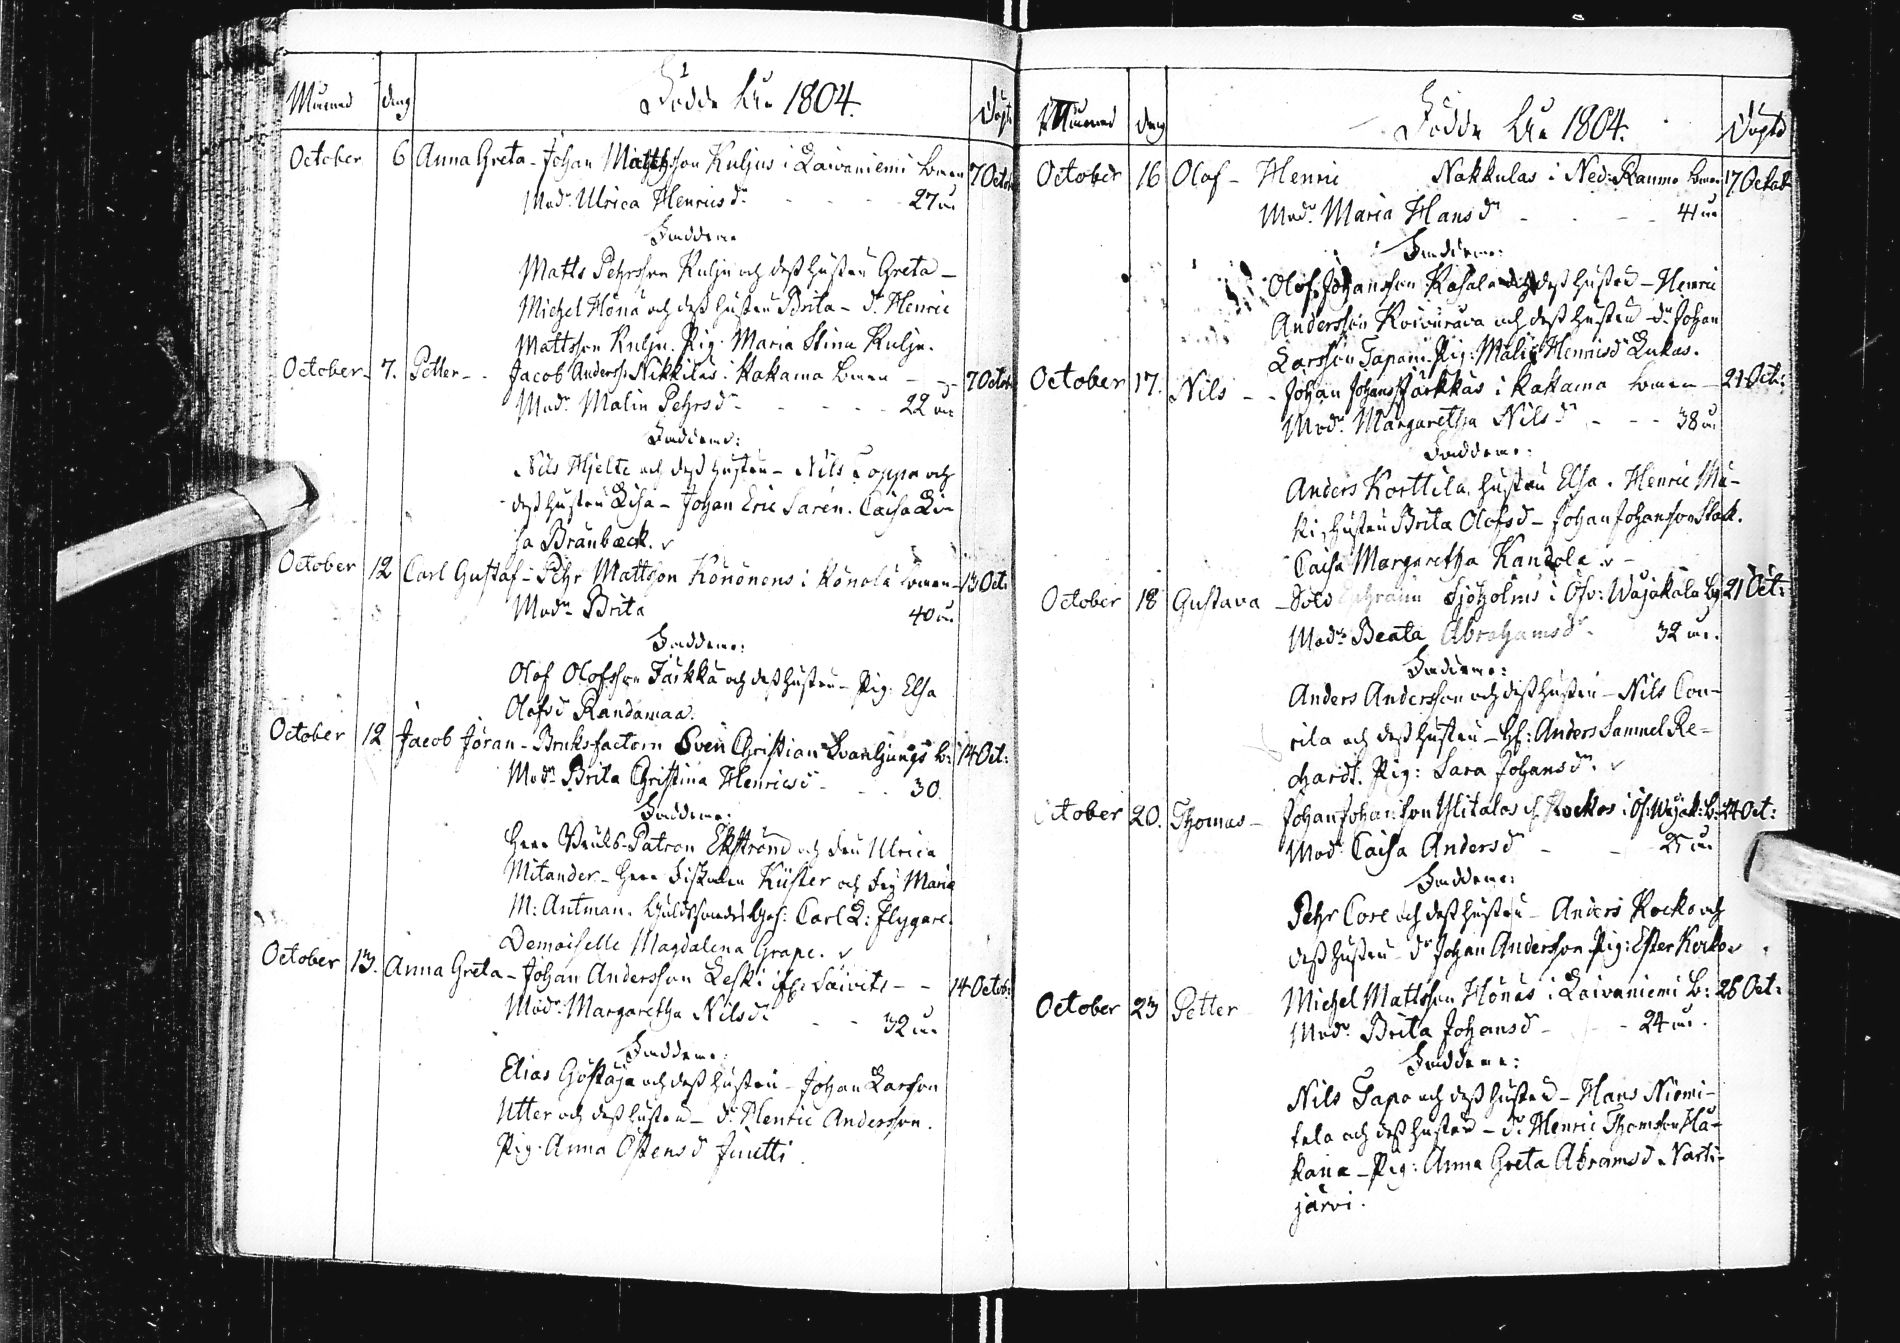 Månad dag Födde År 1804. Döpt
October 6 Anna Greta - Johan Mattsson Kuljus i Laivaniemi barn 7 Octob:
Mod: Ulrica Henricsdr 27 år
Faddrar
Matts Pehrsson Kulju och dess hustru Greta -
Michel Höna och dess hustru Brita - dr. Henric
Mattsson Kulju. Pig. Maria Stina Kulju.
October 7. Petter - Jacob Anderss. Nikkilas i Kakama barn 7 Octob
Mod: Malin Pehrsdr 22 år
Faddrar:
Nils Hjelte och dess hustru - Nils Toppo och
dess hustru Lisa - Johan Eric Saren. Caisa Li-
sa Brunbæck.
October 12 Carl Gustaf - Pehr Mattsson Könönens i Könölä barn 13 Oct:
Mod: Brita 40 år
Faddrar:
Olof Olofsson Taikka och dess hustru - Pig: Elsa
Olofsd Randamaa.
October 12 Jacob Jöran - Bruksfactorn Sven Christian Svanljungs b: 14 Oct:
Mod: Brita Christina Henricsd 30.
Faddrar:
Herr Bruks-Patron Ekström och Fru Ulrica
Mitander - Herr Fiskalen Küster och Frj Maria
M: Antman. Carl L: Flygare.
Demoiselle Magdalena Grape.
October 13. Anna Greta - Johan Andersson Leski Saivits 14 Octob:
Mod: Margaretha Nilsdr 32 år
Faddrar:
Elias Göstaja och dess hustru - Johan Larsson
Utter och dess hustru - dr. Henric Andersson.
Pig. Anna Östensd Juutti
Månad dag Födde År 1804. Döpte
October 16 Olof - Henric Nakkulas i Ned: Raumo barn 17 Octob
Mod: Maria Hansdr 41 år
Faddrar:
Olof Johansson Kasala och dess hustru - Henric
Andersson Koivurava och dess hustru - dr Johan
Larsson Tapani. Pig: Malin Henricsd Lukas.
October 17. Nils - Johan Johanss Parkkas i Kakama barn 21 Oct:
Mod: Margaretha Nilsd 38 år
Faddrar:
Anders Korttila, hustru Elsa. Henric Mä-
ki, hustru Brita Olofsd - Johan Johansson Stock.
Caisa Margaretha Kandola
October 18 Gustava - Sold Ephraim Sjöholms i Öfv: Wojakala b: 21 Oct:
Mod: Beata Abrahamsdr 32 år.
Faddrar:
Anders Andersson och dess hustru - Nils Cou-
rila och dess hustru - Anders Samuel Re-
chardt. Pig: Sara Johansdr.
October 20. Thomas - Johan Johansson Ylitalos Kockos i Öf: Wojak: b: 24 Oct:
Mod: Caisa Andersd 27 år
Faddrar:
Pehr Core och dess hustru - Anders Kocko och
dess hustru - dr Johan Andersson Pig: Ester Kocko
October 23 Petter - Michel Mattsson Hönas i Laivaniemi b: 28 Oct:
Mod: Brita Johansd 24 år.
Faddrar:
Nils Tapo och dess hustru - Hans Niemi-
tala och dess hustru - dr. Henric Thomsson Ha-
kana - Pig: Anna Greta Abramsd Narti-
järvi.